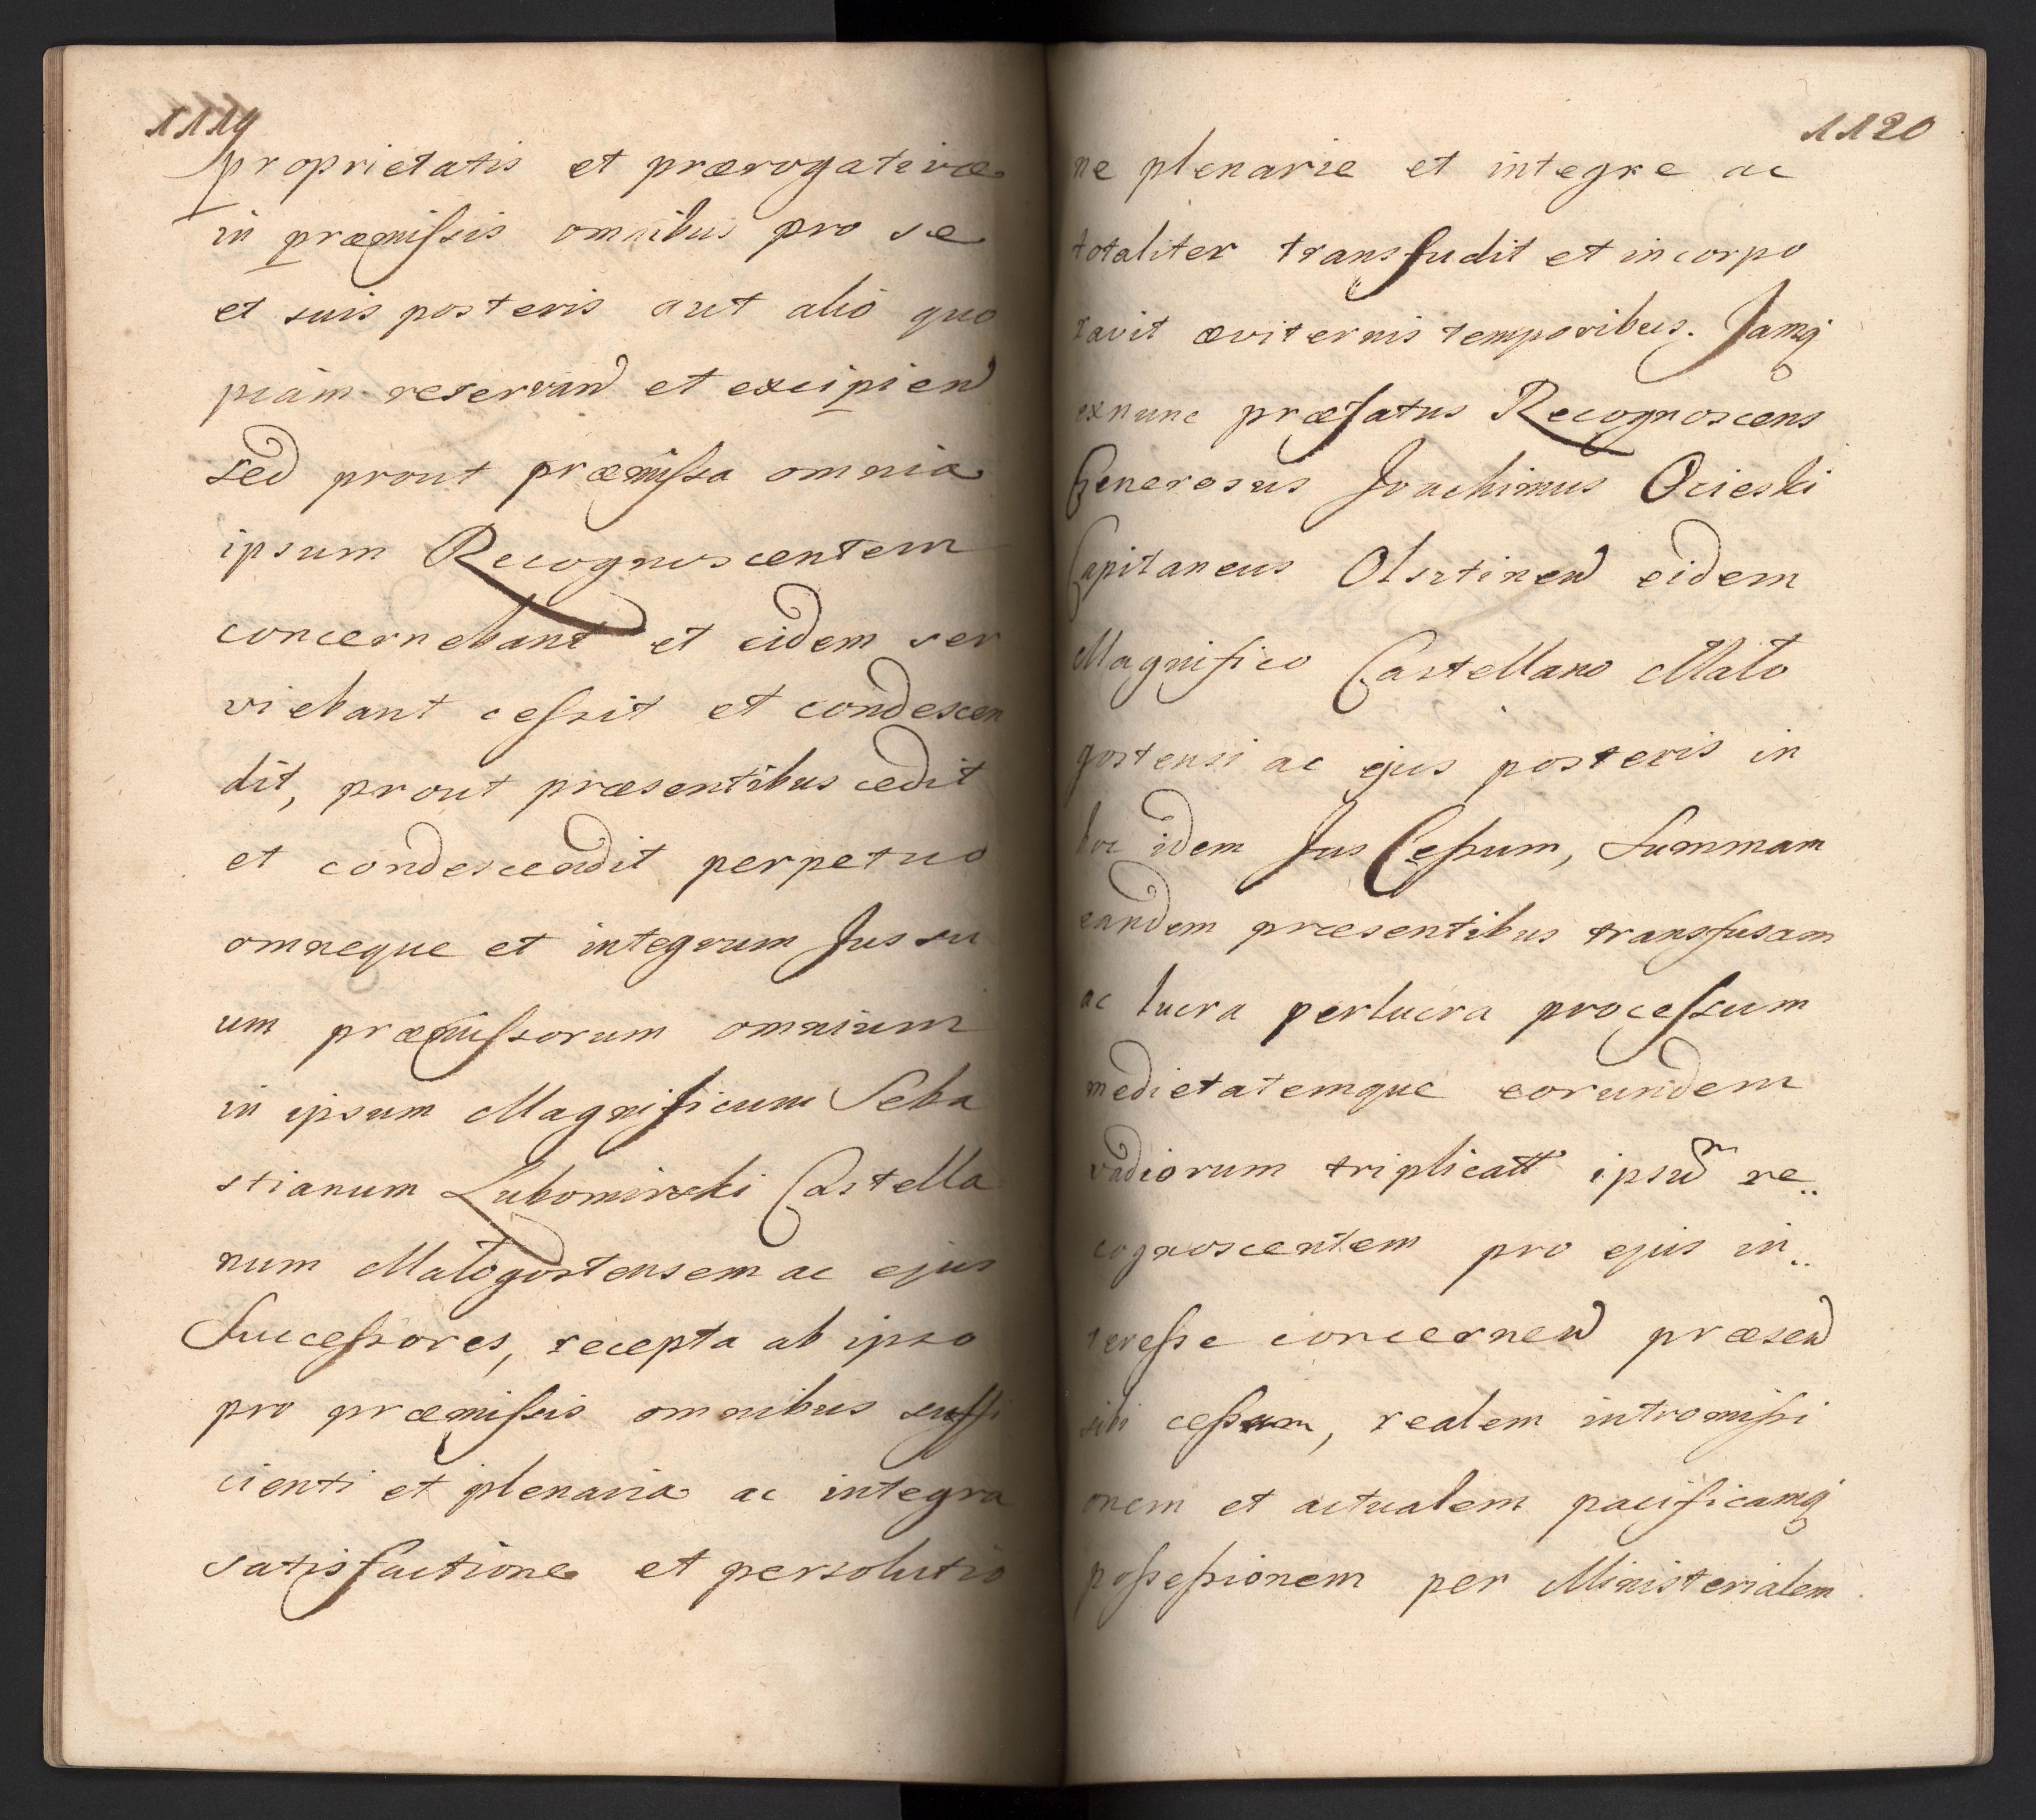 1119
proprietatis et prærogativæ
in præmissis omnibus pro se
et suis posteris aut alió quo
piam reservand et excipiend
sed prout præmissa omnia
ipsum Recognoscentem
concernebant et eidem ser
viebant cessit et condescen
dit, prout præsentibus cedit
et condescendit perpetuo
omneque et integrum Jus su
um præmissorum omnium
in ipsum Magnificum Seba
stianum Lubomirski Castella
num Małogostensem ac ejus
Successores, recepta ab ipso
pro præmissis omnibus suffi
cienti et plenaria ac integra
satisfactione et persolutio
1120
ne plenarie et integre ac
totaliter transfudit et incorpo
ravit æviternis temporibus. Jamq
exnunc præfatus Recognoscens
Generosus Joachimus Ocieski
Capitaneus Olsztinen eidem
Magnifico Castellano Mało
gostensi ac ejus posteris in
hoc idem Jus Cessum, Summam
eandem præsentibus transfusam
ac lucra perlucra processum
medietatemque eorundem
vadiorum triplicatt ipsum re..
cognoscentem pro ejus in..
teresse concernen præsen
sibi cessum, realem intromissi
onem et actualem pacificamq
possessionem per Ministerialem